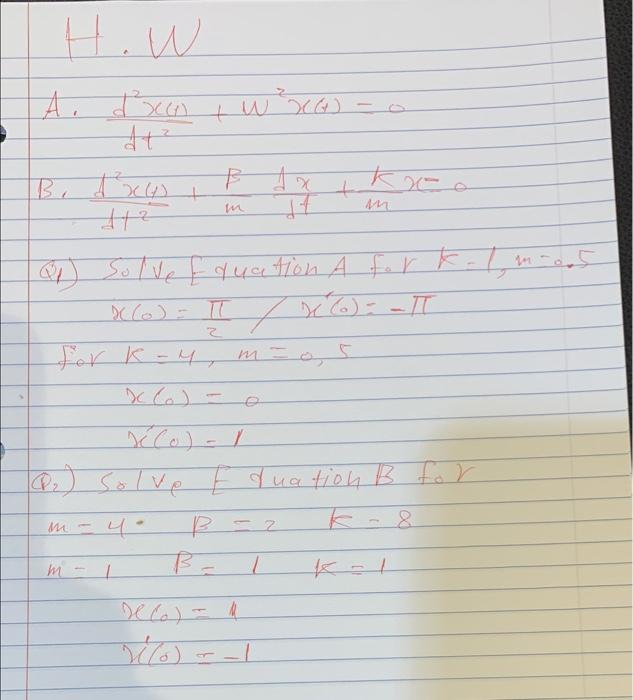 H.W
A. d²x(t)/dt² + W²x(t) = 0
B. d²x(t)/dt² + β/m dx/dt + k/m x = 0
Q1) Solve Equation A for k=1, m=0.5
x(0) = π/2 / x'(0) = -π
for k=4, m=0,5
x(0) = 0
x'(0) = 1
Q2) Solve Equation B for
m=4 β=2 k=8
m=1 β=1 k=1
x(0) = 1
x'(0) = -1